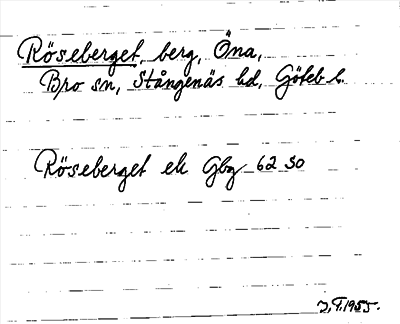 Röseberget, berg, Öna,
Bro sn, Stångenäs hd, Göteb l.
Röseberget ek Gbg 62 SO
J.F.1955.